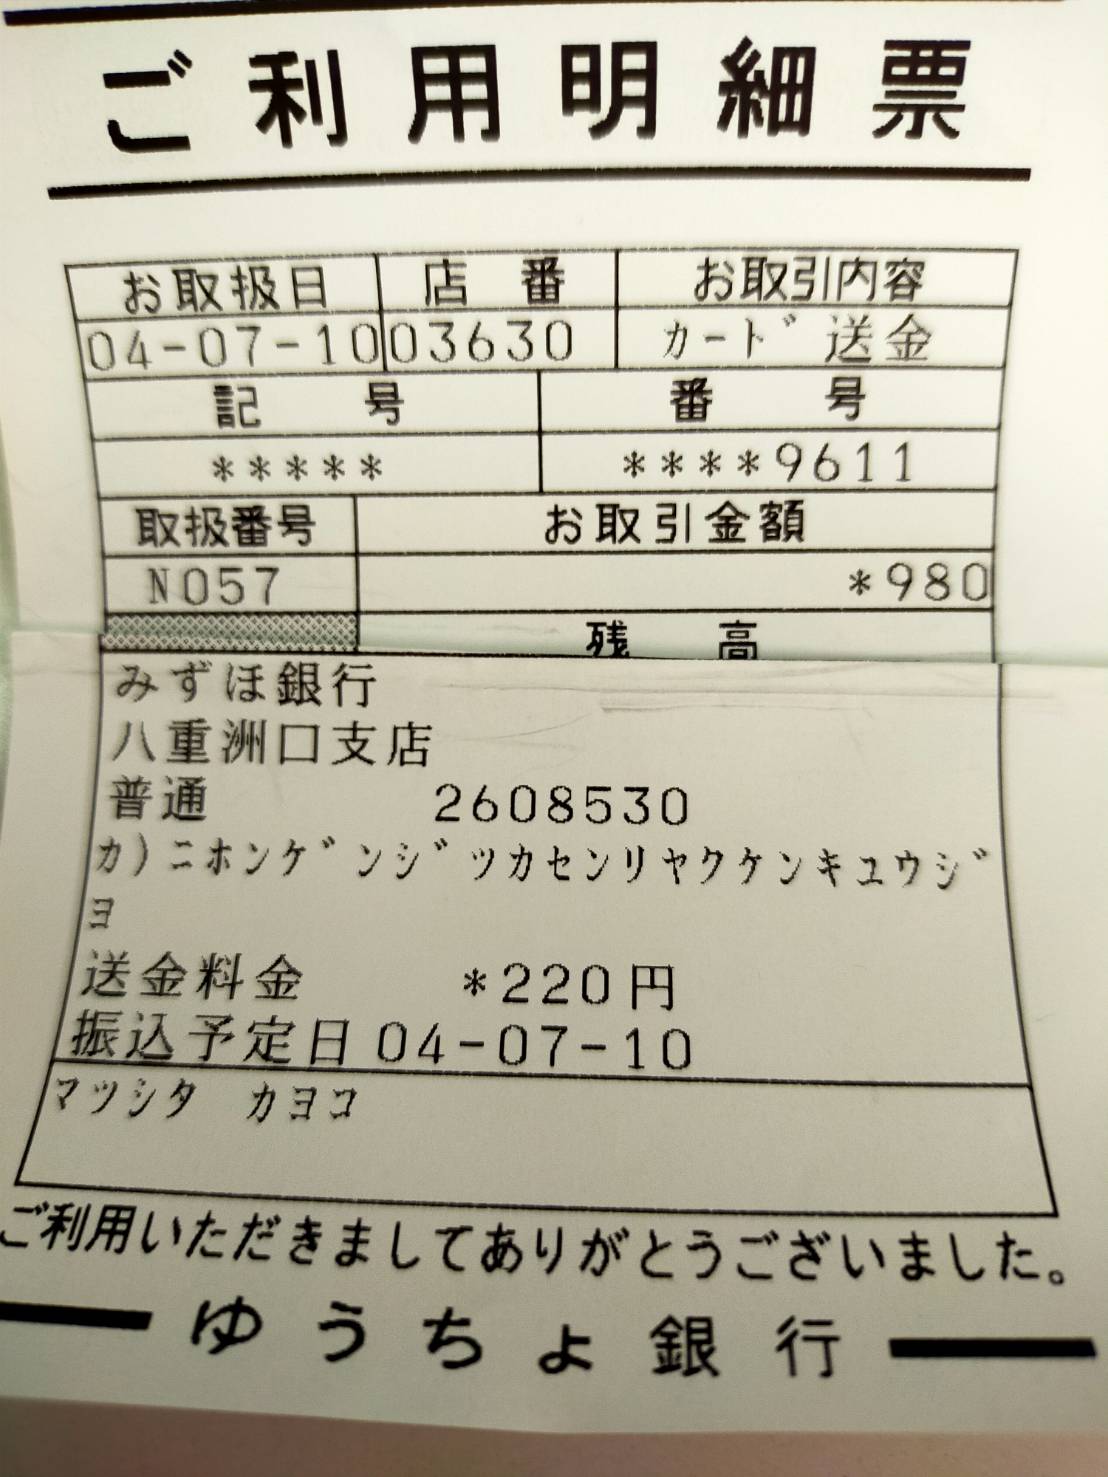 ご利用明細票
お取扱日 店番 お取引内容
04-07-10 03630 カード送金
記号 番号
***** ****9611
取扱番号 お取引金額
N057 *980
残高
みずほ銀行
八重洲口支店
普通 2608530
カ)ニホンゲンジツカセンリヤクケンキユウジ
ヨ
送金料金 *220円
振込予定日 04-07-10
マツシタ カヨコ
ご利用いただきましてありがとうございました。
ゆうちょ銀行